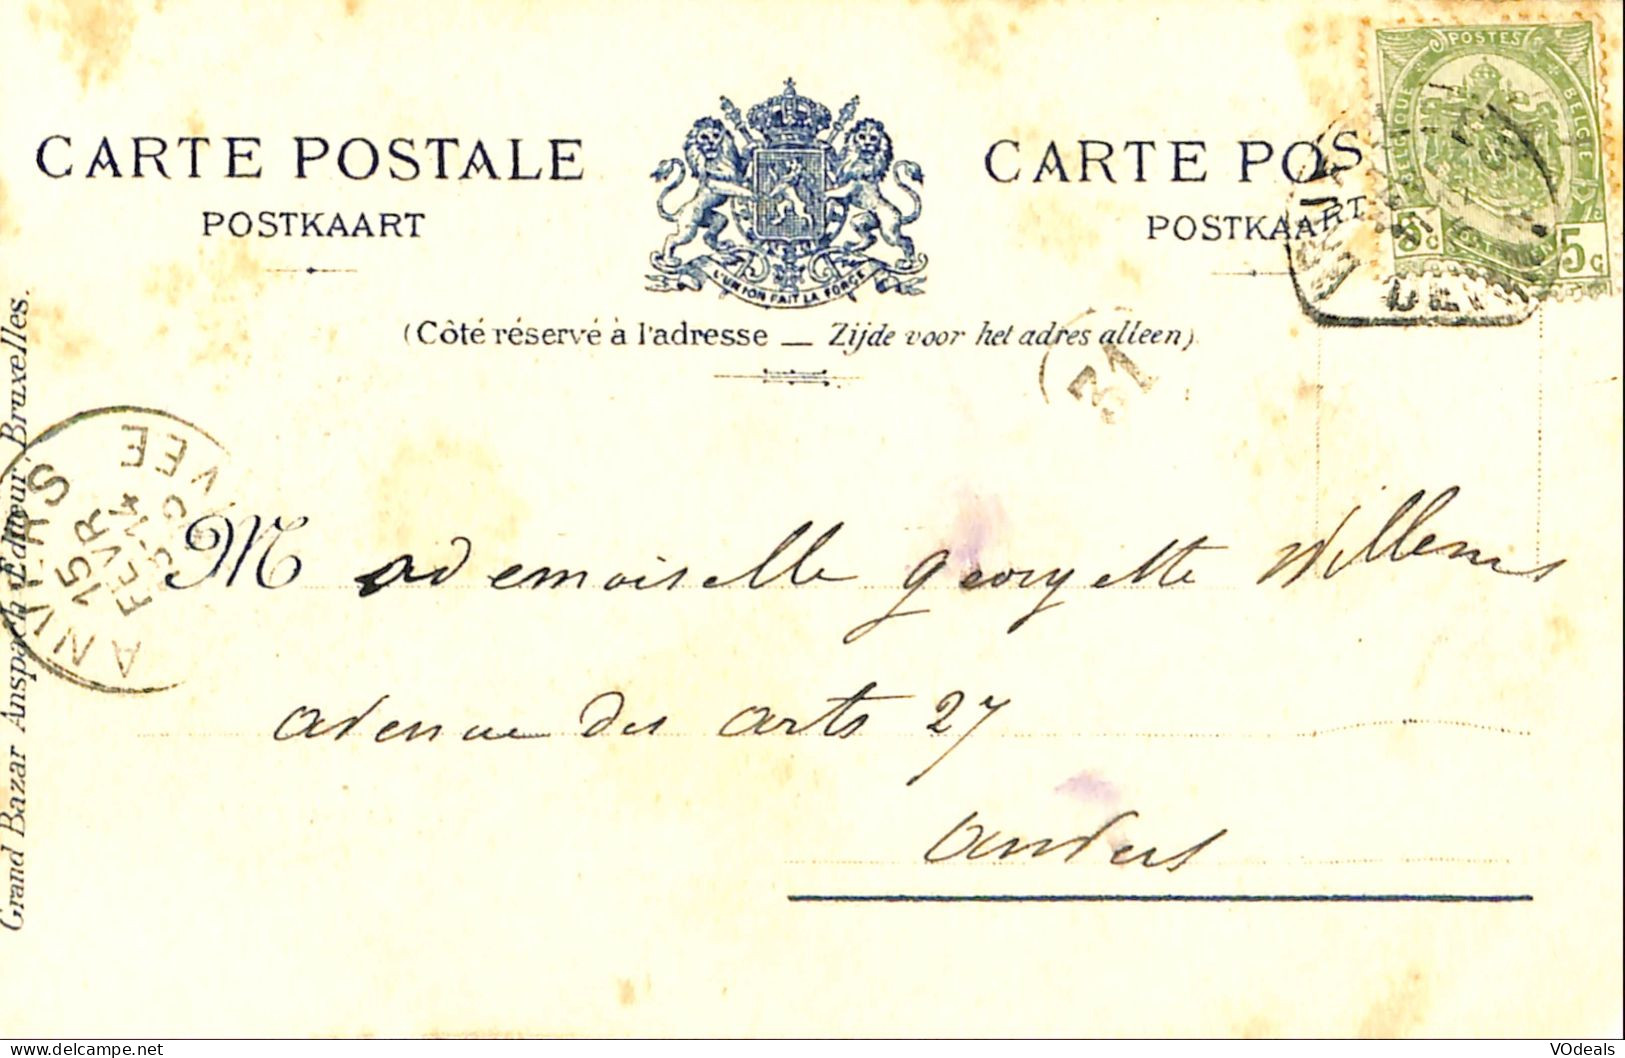 CARTE POSTALE
POSTKAART
CARTE POS
POSTKAART
POSTES
BELGIQUE
BELGIE
5c
5c
L'UNION FAIT LA FORCE
(Côté réservé à l'adresse — Zijde voor het adres alleen)
31
ANVERS
15
FEVR
Grand Bazar Anspach Editeur. Bruxelles.
Mademoiselle Georgette Willems
avenue des arts 27
Anvers
delcampe.net
VOdeals